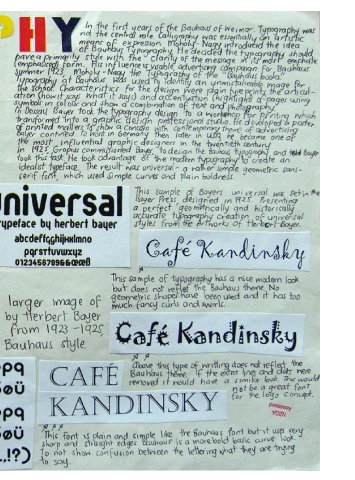 PHY
In the first years of the Bauhaus of Weimar, Typography was
not the central role Calligraphy was essentially an artistic
means of expression. Moholy-Nagy introduced the idea
of Bauhaus Typography. He decided the typography should
have a primarily style with the "clarity of the message in its most emphatic
(emphasised) form. His influence is visible advertising campaign for Bauhaus
summer 1923. Moholy-Nagy the typography of the "Bauhaus books"
Typography at Bauhaus was used to identify an unmistakable image for
the school. Characteristics for the design were plain type prints, the articul-
ation and accentuation (highlights) of pages using
symbols in colour and show a combination of text and photography.
In Dessau Bayer took the typography design to a workshop for printing which
transformed into a graphic design
of printed matters to show a concept with contemporary there of advertising
Bayer
the most influential graphic designers in the twentieth century
In 1925, Gropius commissioned Bayer to design the Bauhaus typography and
took this task. He took advantage of the modern typography to create an
idealist typeface. The result was universal a rather simple geometric sans-
serif font, which used simple curves and plain boldness.
universal
typeface by herbert bayer
abcdefghijklmno
pqrstuvwxyz
This sample of Bayers universal was set in the
Bayer Press designed in 1925. Presenting
a perfect geometrically and historically
accurate typography creation of universal
styles from the artworks of Herbert Bayer.
Café Kandinsky
This sample of typography has a nice modern look
but does not reflect the Bauhaus theme. No
geometric shapes have been used and it has too
much fancy curls and swirls.
larger image of
by Herbert Bayer
from 1923-1925
Bauhaus style.
Café Kandinsky
Above this type of writing does not reflect the
Bauhaus theme. If the extra lines and dots were
removed it would have a similar look. This would
not be a great font
for the logo concept.
CAFÉ
KANDINSKY
This font is plain and simple like the Bauhaus font but it use very
sharp and straight edges bauhaus is a more bold basic curve look.
To not show confusion between the lettering what they are trying
to say.